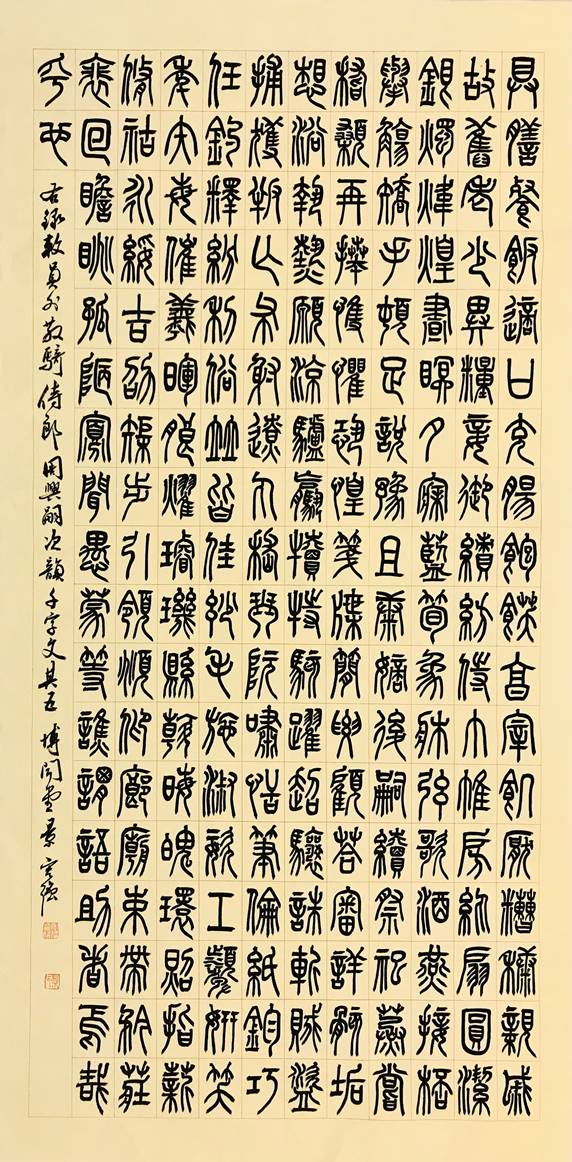 具膳餐飯適口充腸飽飫烹宰飢厭糟糠親戚
故舊老少異糧妾御績紡侍巾帷房紈扇圓潔
銀燭煒煌晝瞑夕寐藍筍象牀弦歌酒燕接桮
舉觴矯手頓足說豫且康嫡後嗣續祭祀蒸嘗
稽顙再拜悚懼恐惶箋牒簡要顧答審詳骸垢
想浴執熱願涼驢騾犢特駭躍超驤誅斬賊盜
捕獲叛亡布射遼丸嵇琴阮嘯恬筆倫紙鈞巧
任釣釋紛利俗竝皆佳妙毛施淑姿工顰妍笑
年矢每催羲暉朗燿璿璣縣斡晦魄環照指薪
脩祜永綏吉劭矩步引領俯仰廊廟束帶矜莊
裴回瞻眺孤陋寡聞愚蒙等誚謂語助者焉哉
乎也
右錄敕員外散騎侍郎周興嗣次韻千字文其五 博聞堂